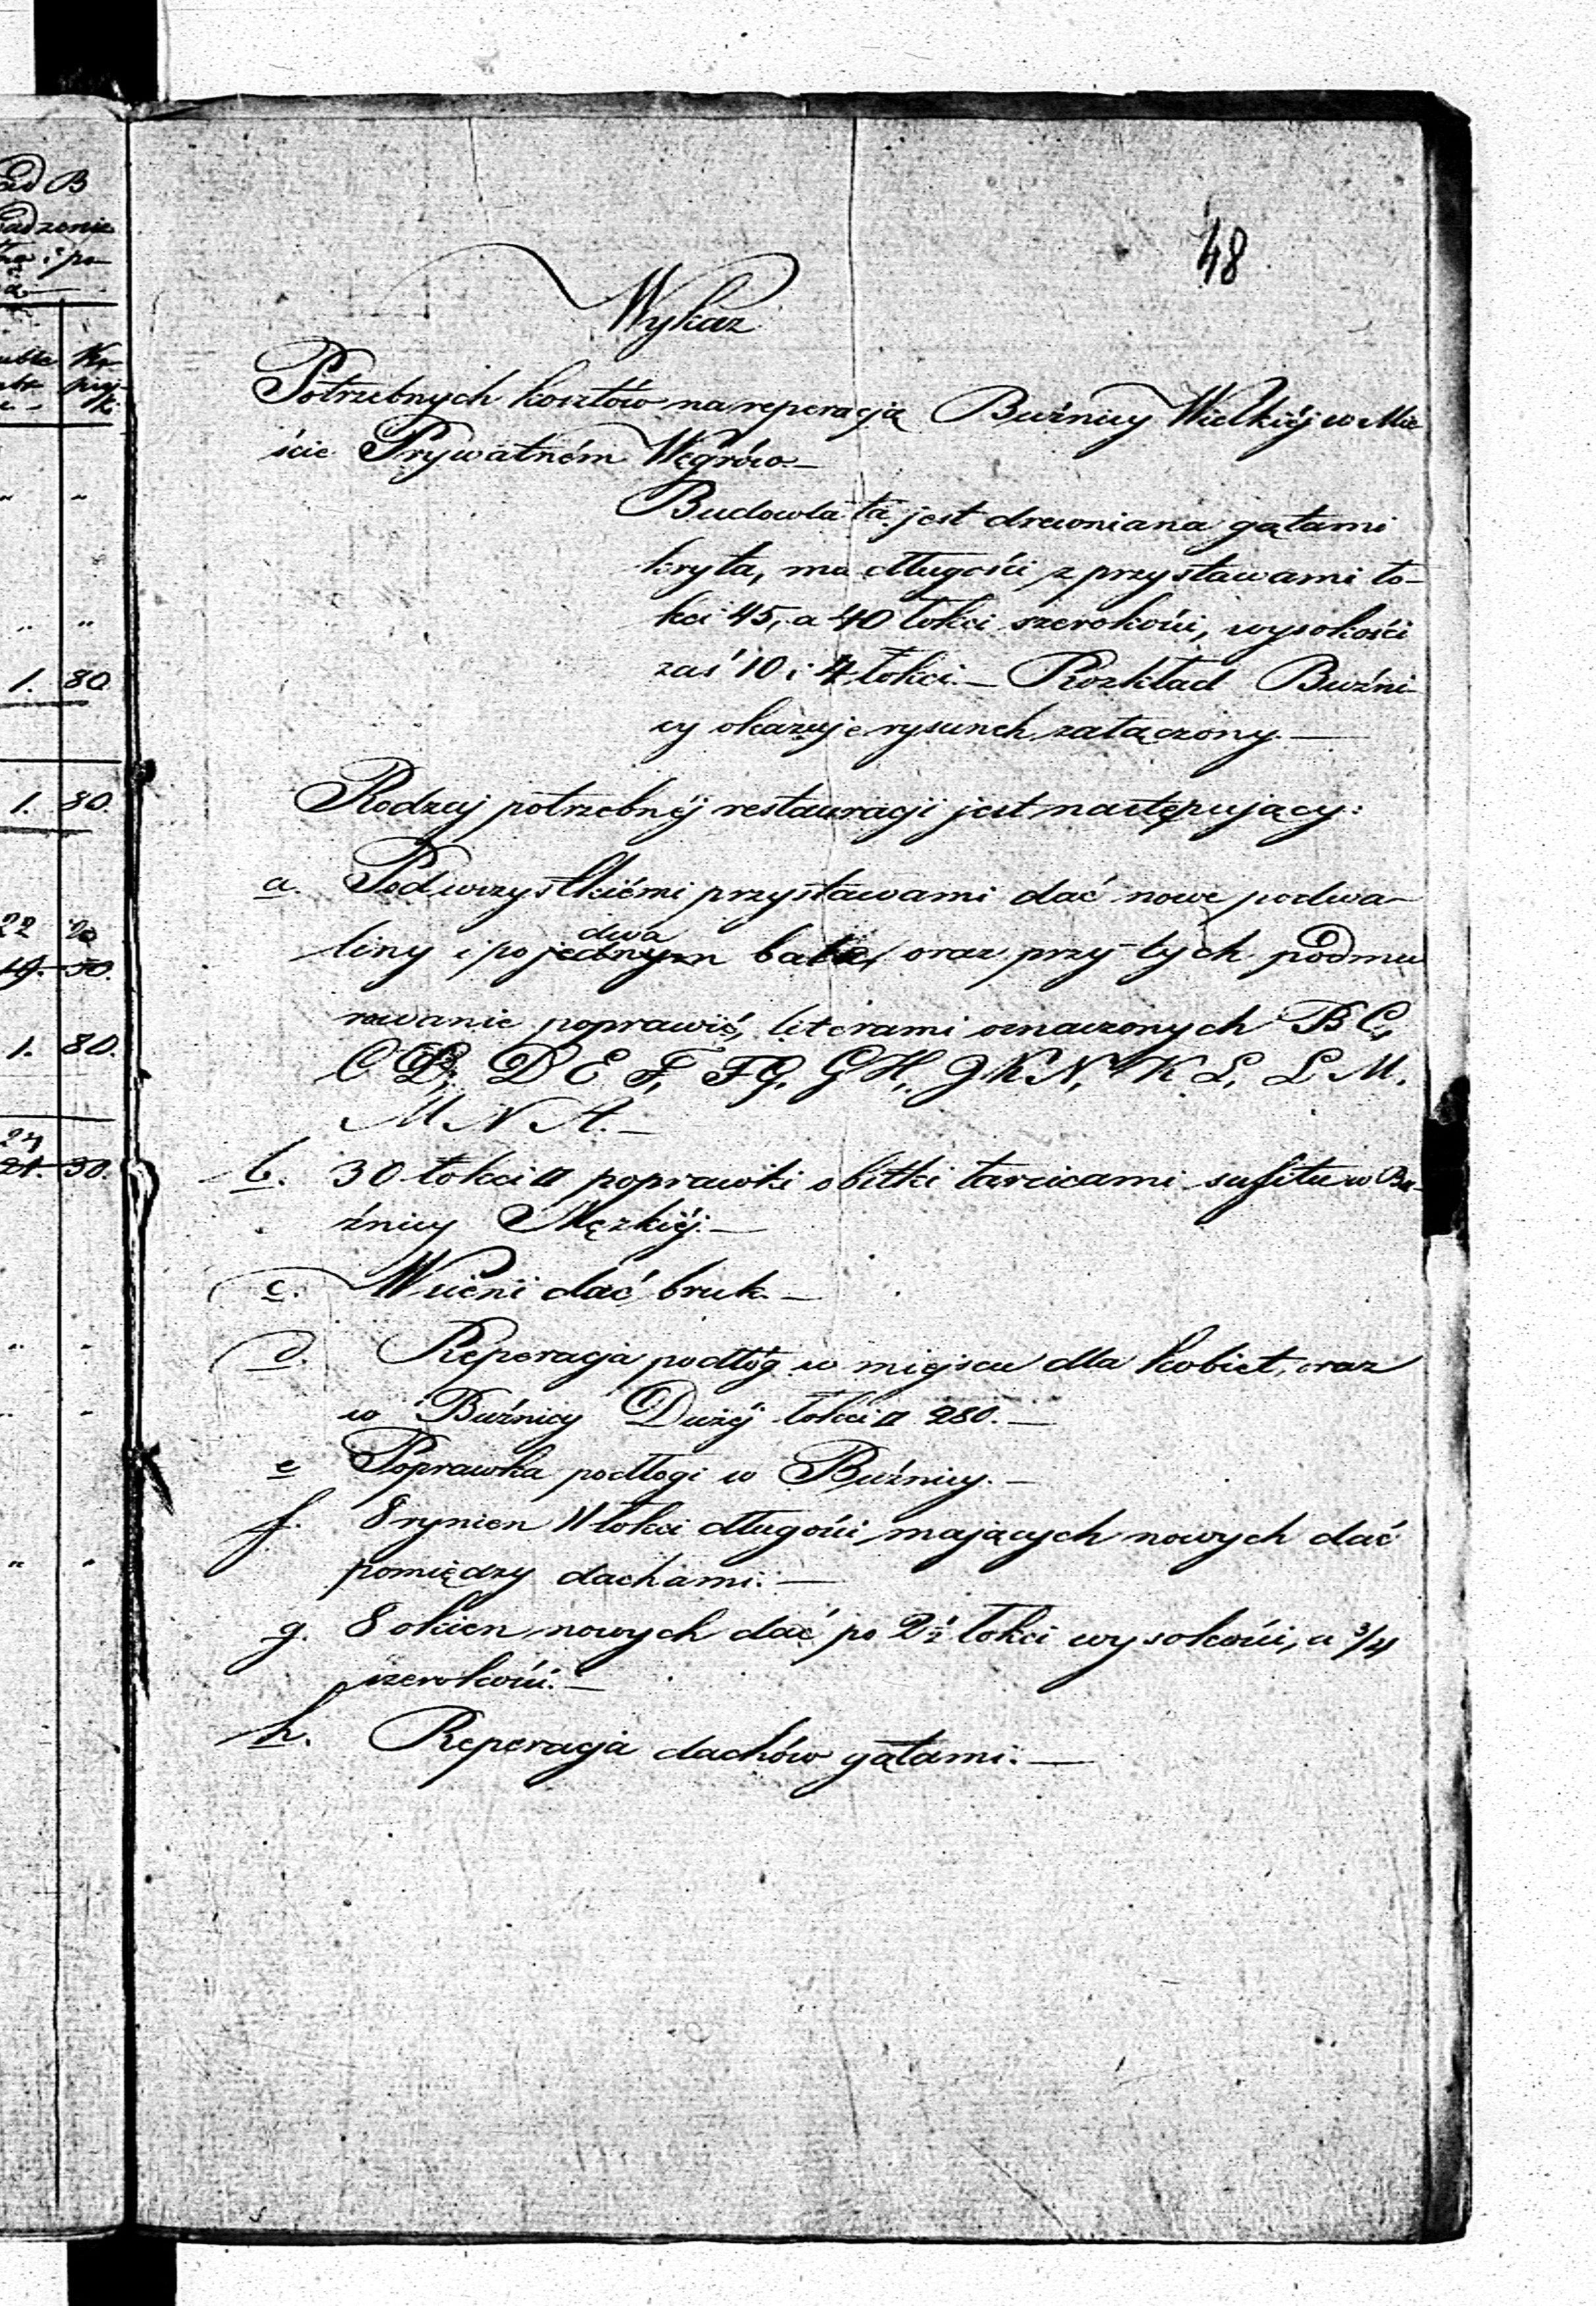 ad B
adzenie
na i po
48
Wykaz
Potrzebnych kosztów na reperacją Buźnicy Wielkiéj w Mie
ście Prywatném Węgrów. —
Budowla ta jest drewniana gątami
kryta, ma długości z przystawami ło-
kci 45, a 40 łokci szerokości, wysokości
zaś 10 i 4 łokci. — Rozkład Buźni-
cy okazuje rysunek załączony. —
Rodzaj potrzebnéj restauracji jest następujący:
a. Pod wszystkiémi przystawami dać nowe podwa-
dwa
liny i po jednym bala, oraz przy tych podmu
rowanie poprawić, literami oznaczonych B C,
C D, D E F, F G, G H, J K N, K L, L M.
M N A. —
b. 30 łokci □ poprawki obitki tarcicami sufitu w Bu-
źnicy Męzkiéj. —
c. W sieni dać bruk. —
d. Reperacja podłóg w miejscu dla kobiet, oraz
w Buźnicy Dużéj łokci □ 280. —
e Poprawka podłogi w Buźnicy. —
f. 8 rynien 11 łokci długości mających nowych dać
pomiędzy dachami. —
g. 8 okien nowych dać po 2½ łokci wysokości, a 3/4
szerokości. —
h. Reperacja dachów gątami. —
1. 80
1. 80.
22 20
19. 50.
1. 80.
24
21. 30.